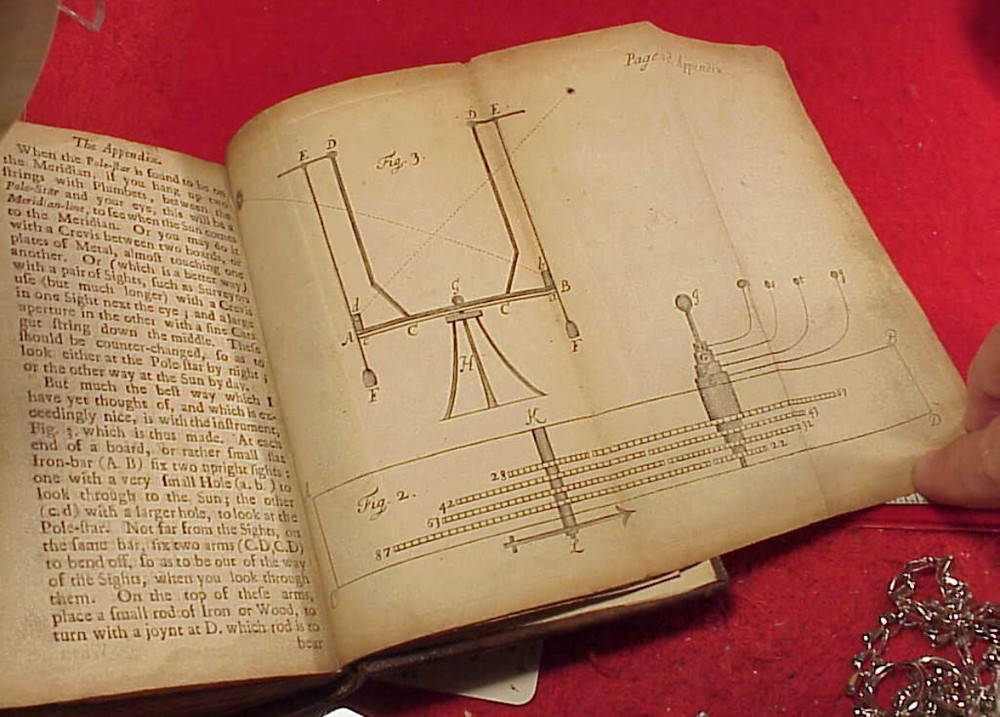 The Appendix.
When the Pole-ſtar is found to be on
the Meridian, if you hang up two
ſtrings with Plumbets, between the
Pole-Star and your eye, this will be a
Meridian-line, to ſee when the Sun comes
to the Meridian. Or you may do it
with a Crevis between two boards, or
plates of Metal, almoſt touching one
another. Or (which is a better way)
with a pair of Sights, ſuch as Surveyors
uſe (but much longer) with a Crevis
in one Sight next the eye; and a large
aperture in the other with a fine
gut ſtring down the middle. Theſe
ſhould be counter-changed, ſo as to
look either at the Pole ſtar by night;
or the other way at the Sun by day.
But much the beſt way which I
have yet thought of, and which is ex-
ceedingly nice, is with the inſtrument,
Fig. 3. which is thus made. At each
end of a board, or rather ſmall flat
Iron-bar (A. B) fix two upright ſights:
one with a very ſmall Hole (a. b.) to
look through to the Sun; the other
(c. d) with a larger hole, to look at the
Pole-ſtar. Not far from the Sights, on
the ſame bar, fix two arms (C.D,C.D)
to bend off, ſo as to be out of the way
of the Sights, when you look through
them. On the top of theſe arms,
place a ſmall rod of Iron or Wood, to
turn with a joynt at D. which rod is to
bear
Page Appendix
E D
D E
Fig. 3.
d
G
B
A C C
C
H
F
F
g
B
K
D
67
43
32
22
28
42
63
87
Fig. 2.
L
C